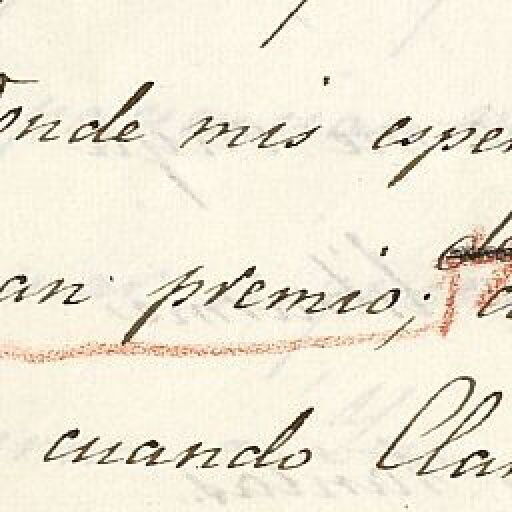 onde mis espe
an premio;
cuando Cla